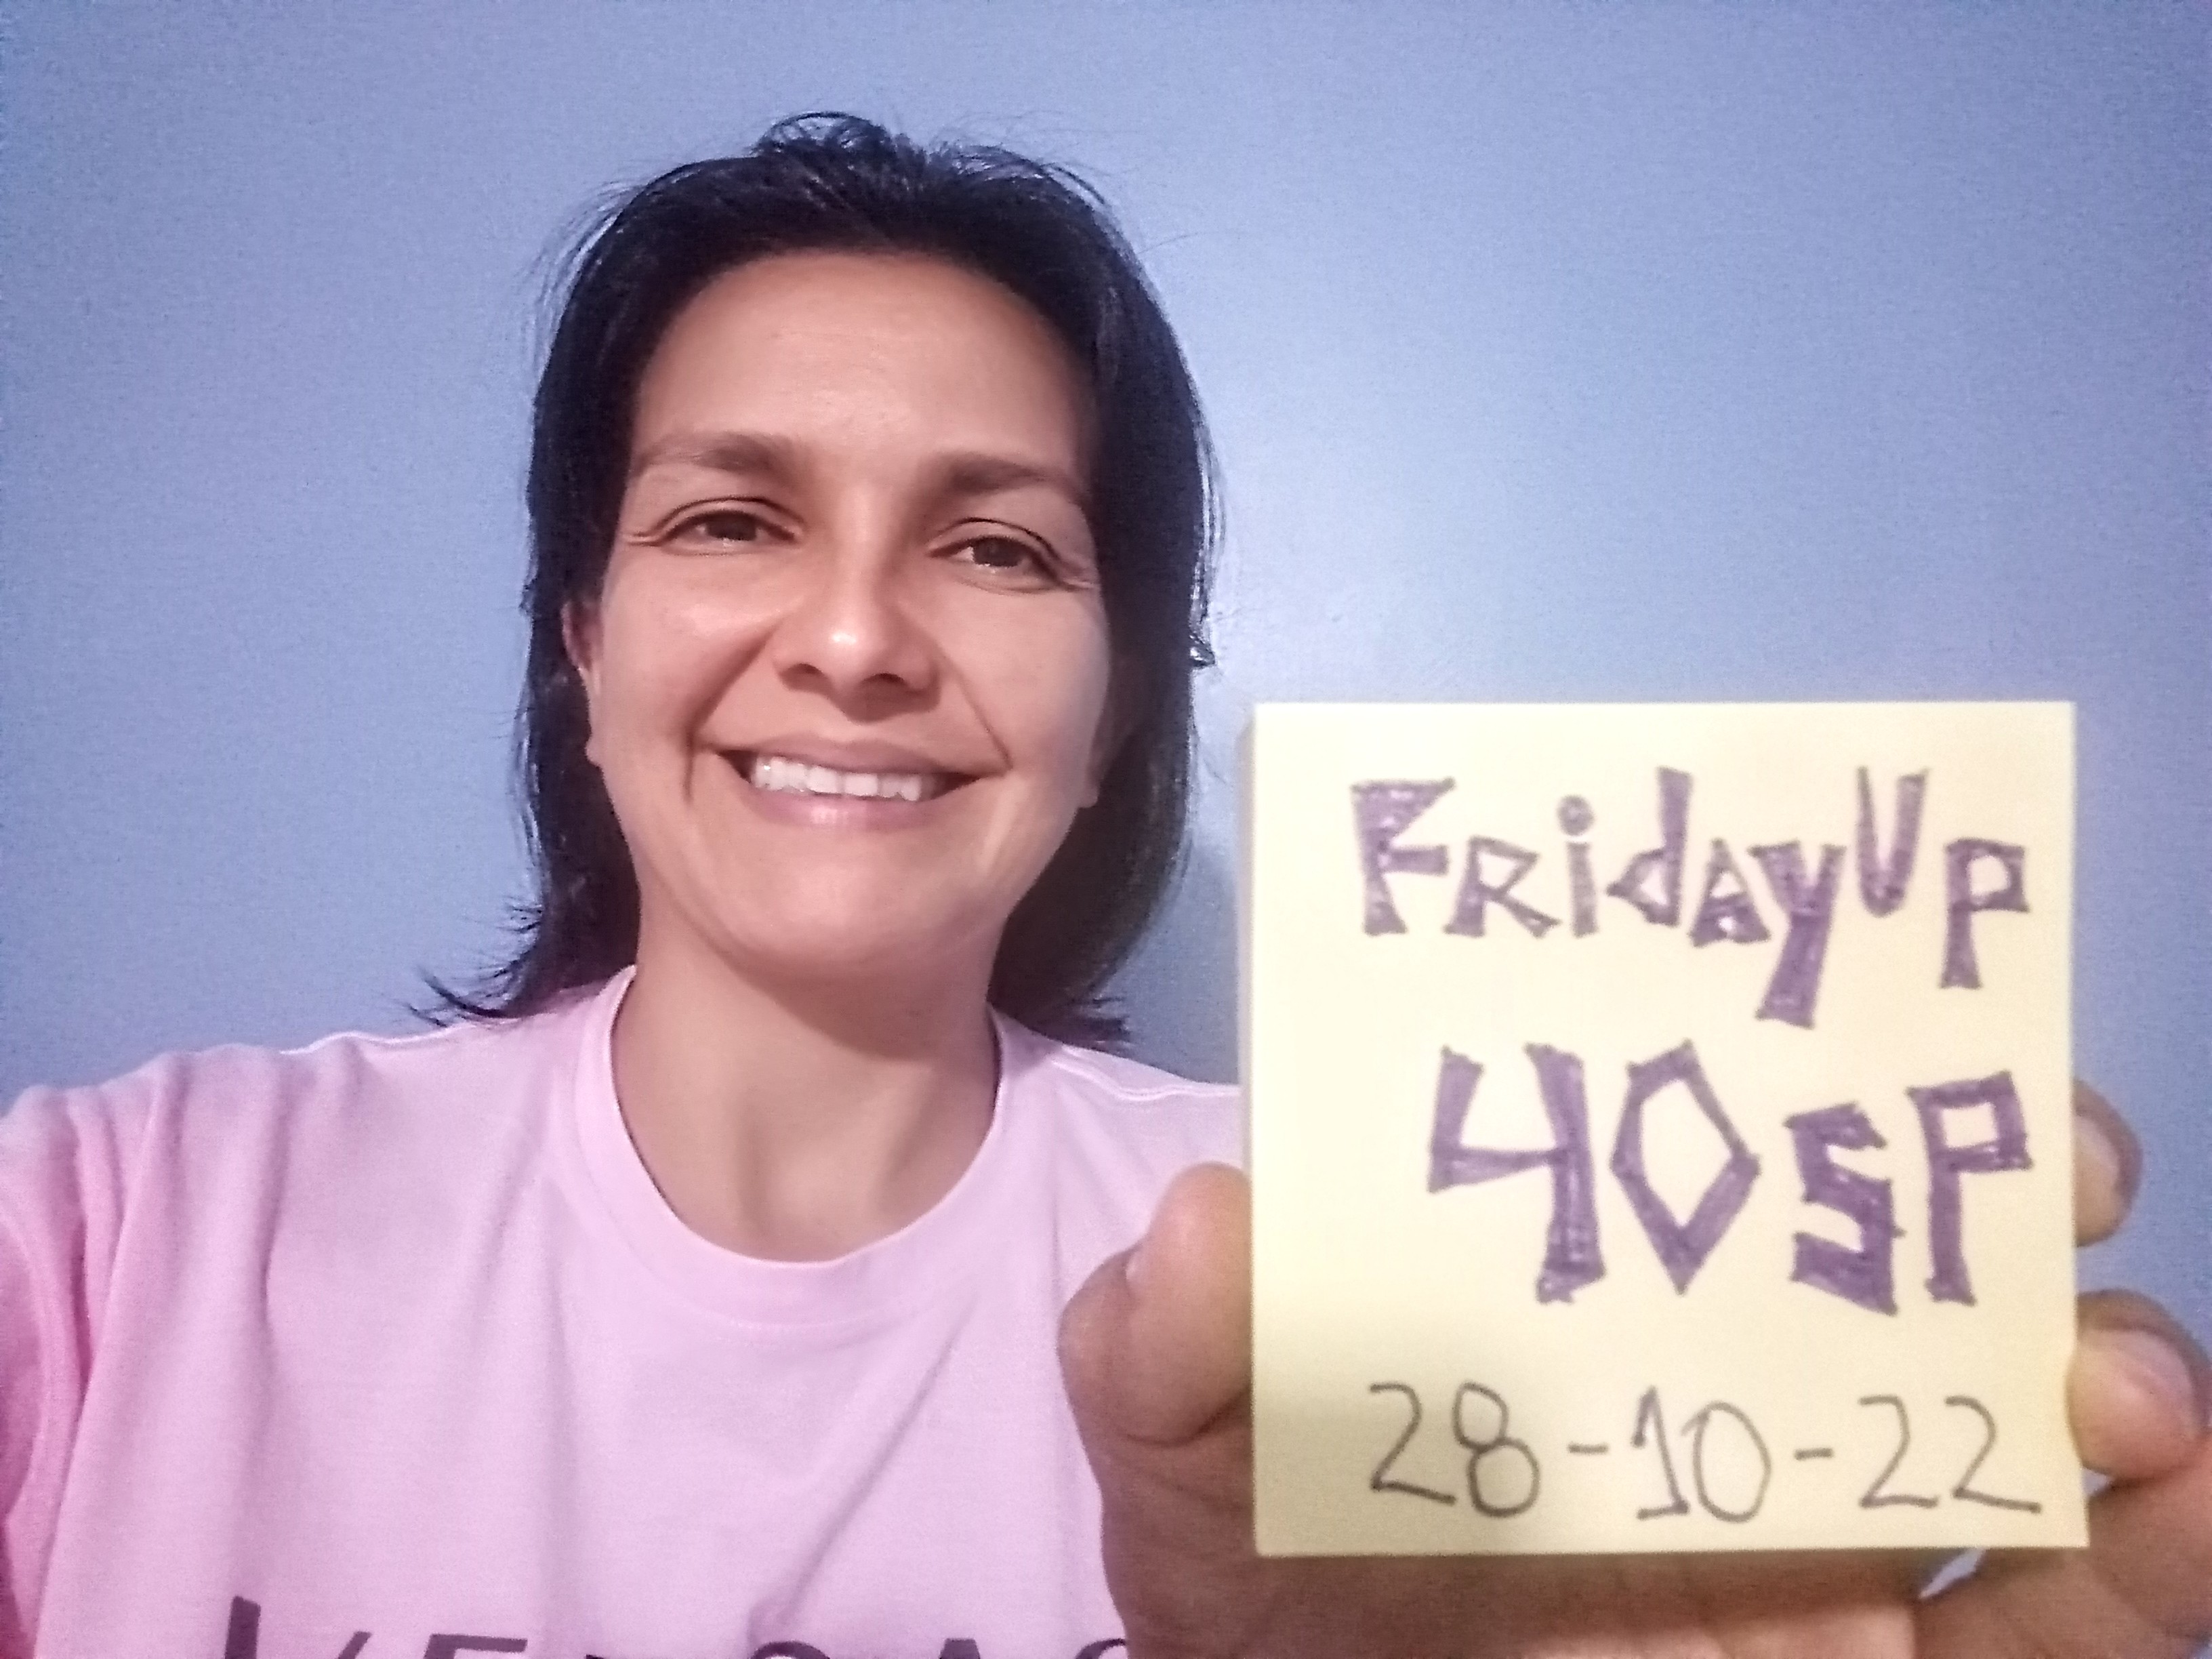 FRidAyUp
40SP
28-10-22